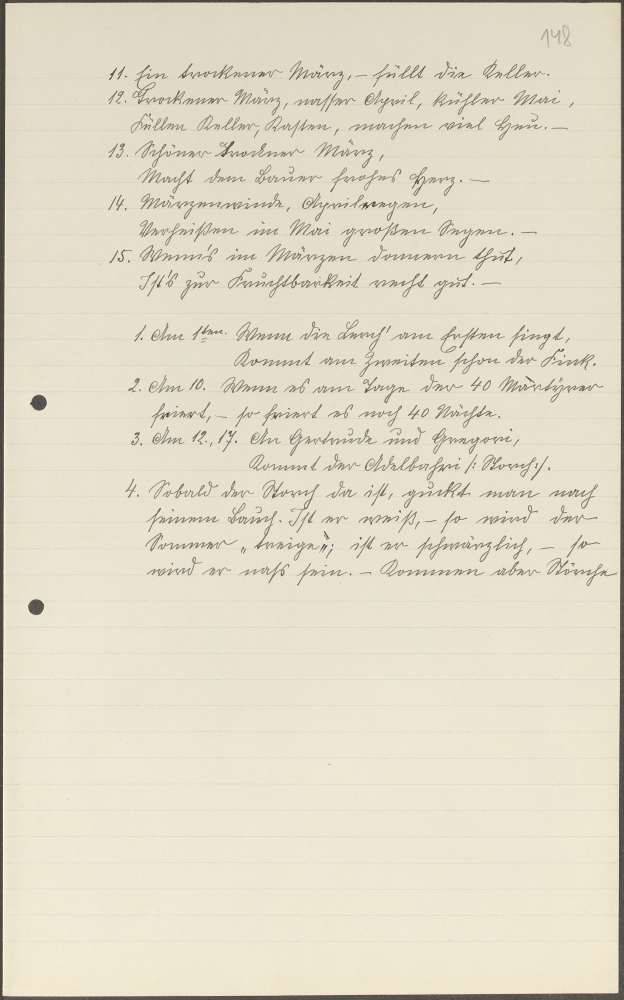 148
11. Ein trockener März, – füllt die Keller.
12. Trockener März, nasser April, kühler Mai,
Füllen Keller, Kasten, machen viel Heu. –
13. Schöner trockner März,
Macht dem Bauer frohes Herz. –
14. Märzenwinde, Aprilregen,
Verheißen im Mai großen Segen. –
15. Wenn's im Märzen donnern thut,
Ist's zur Fruchtbarkeit recht gut. –
1. Am 1ten. Wenn die Lerch' am Ersten singt,
Kommt am Zweiten schon der Fink.
2. Am 10. Wenn es am Tage der 40 Märtyrer
friert, – so friert es noch 40 Nächte.
3. Am 12., 17. An Gertrude und Gregori,
Kommt der Adelbahri /: Storch :/.
4. Sobald der Storch da ist, guckt man nach
seinem Bauch. Ist er weiß, – so wird der
Sommer „treige"; ist er schwärzlich, – so
wird er naß sein. – Kommen aber Störche